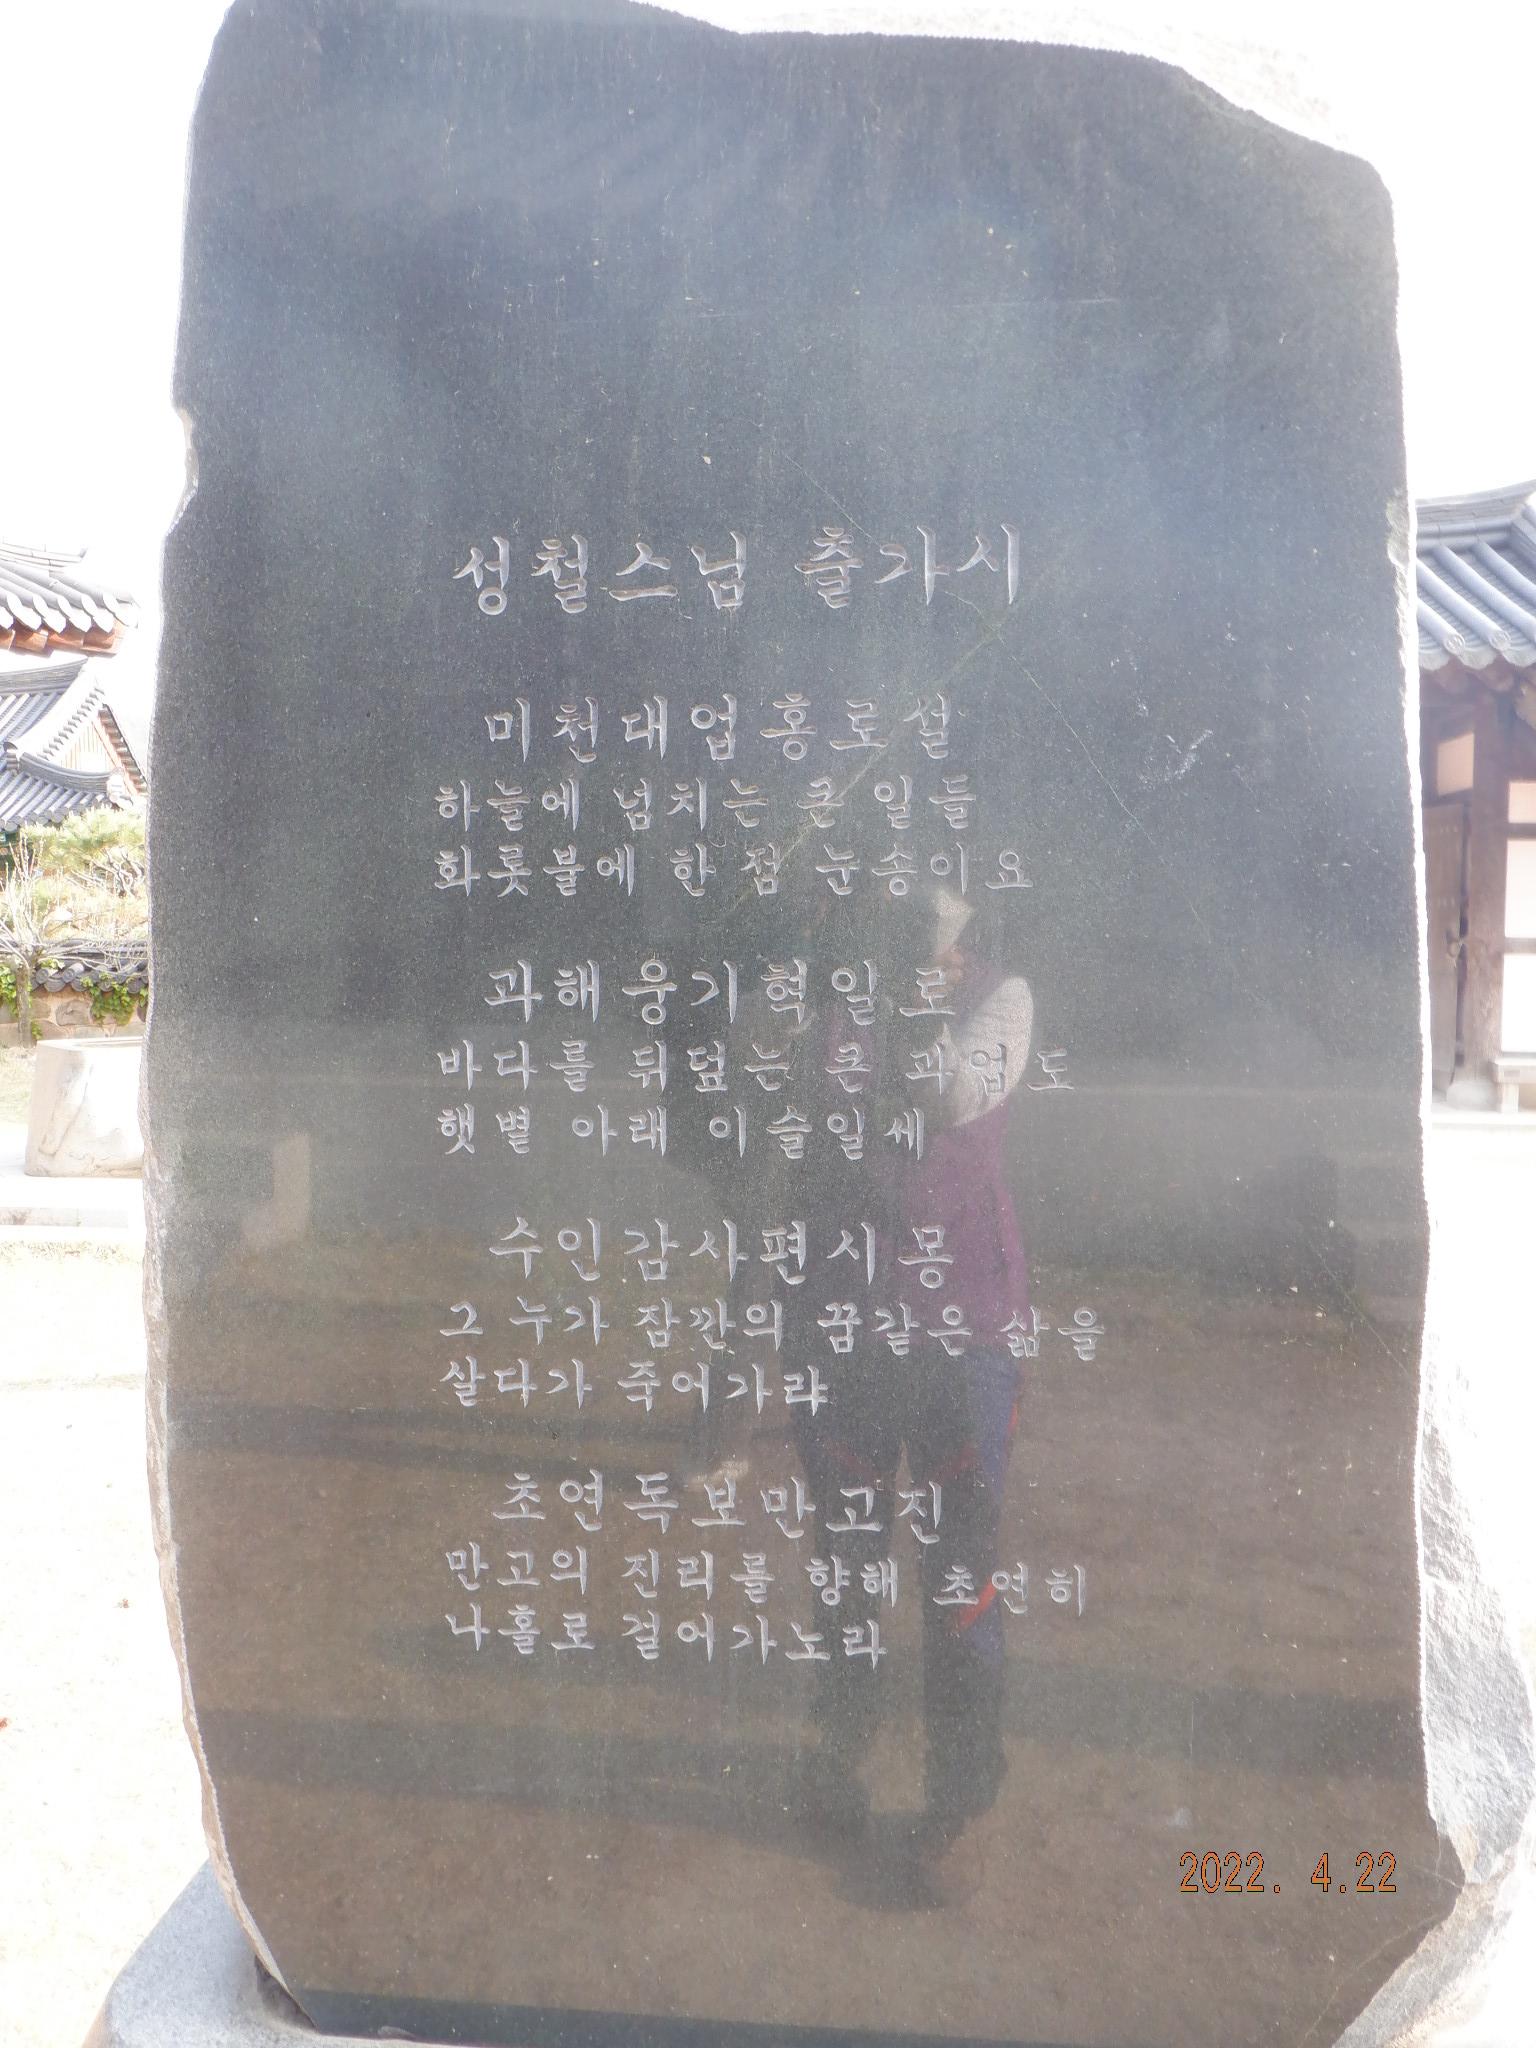 성철스님 출가시
미천대업홍로설
하늘에 넘치는 큰 일들
화롯불에 한 점 눈송이요
과해웅기혁일로
바다를 뒤덮는 큰 과업도
햇볕 아래 이슬일세
수인감사편시몽
그 누가 잠깐의 꿈같은 삶을
살다가 죽어가랴
초연독보만고진
만고의 진리를 향해 초연히
나홀로 걸어가노라
2022. 4.22